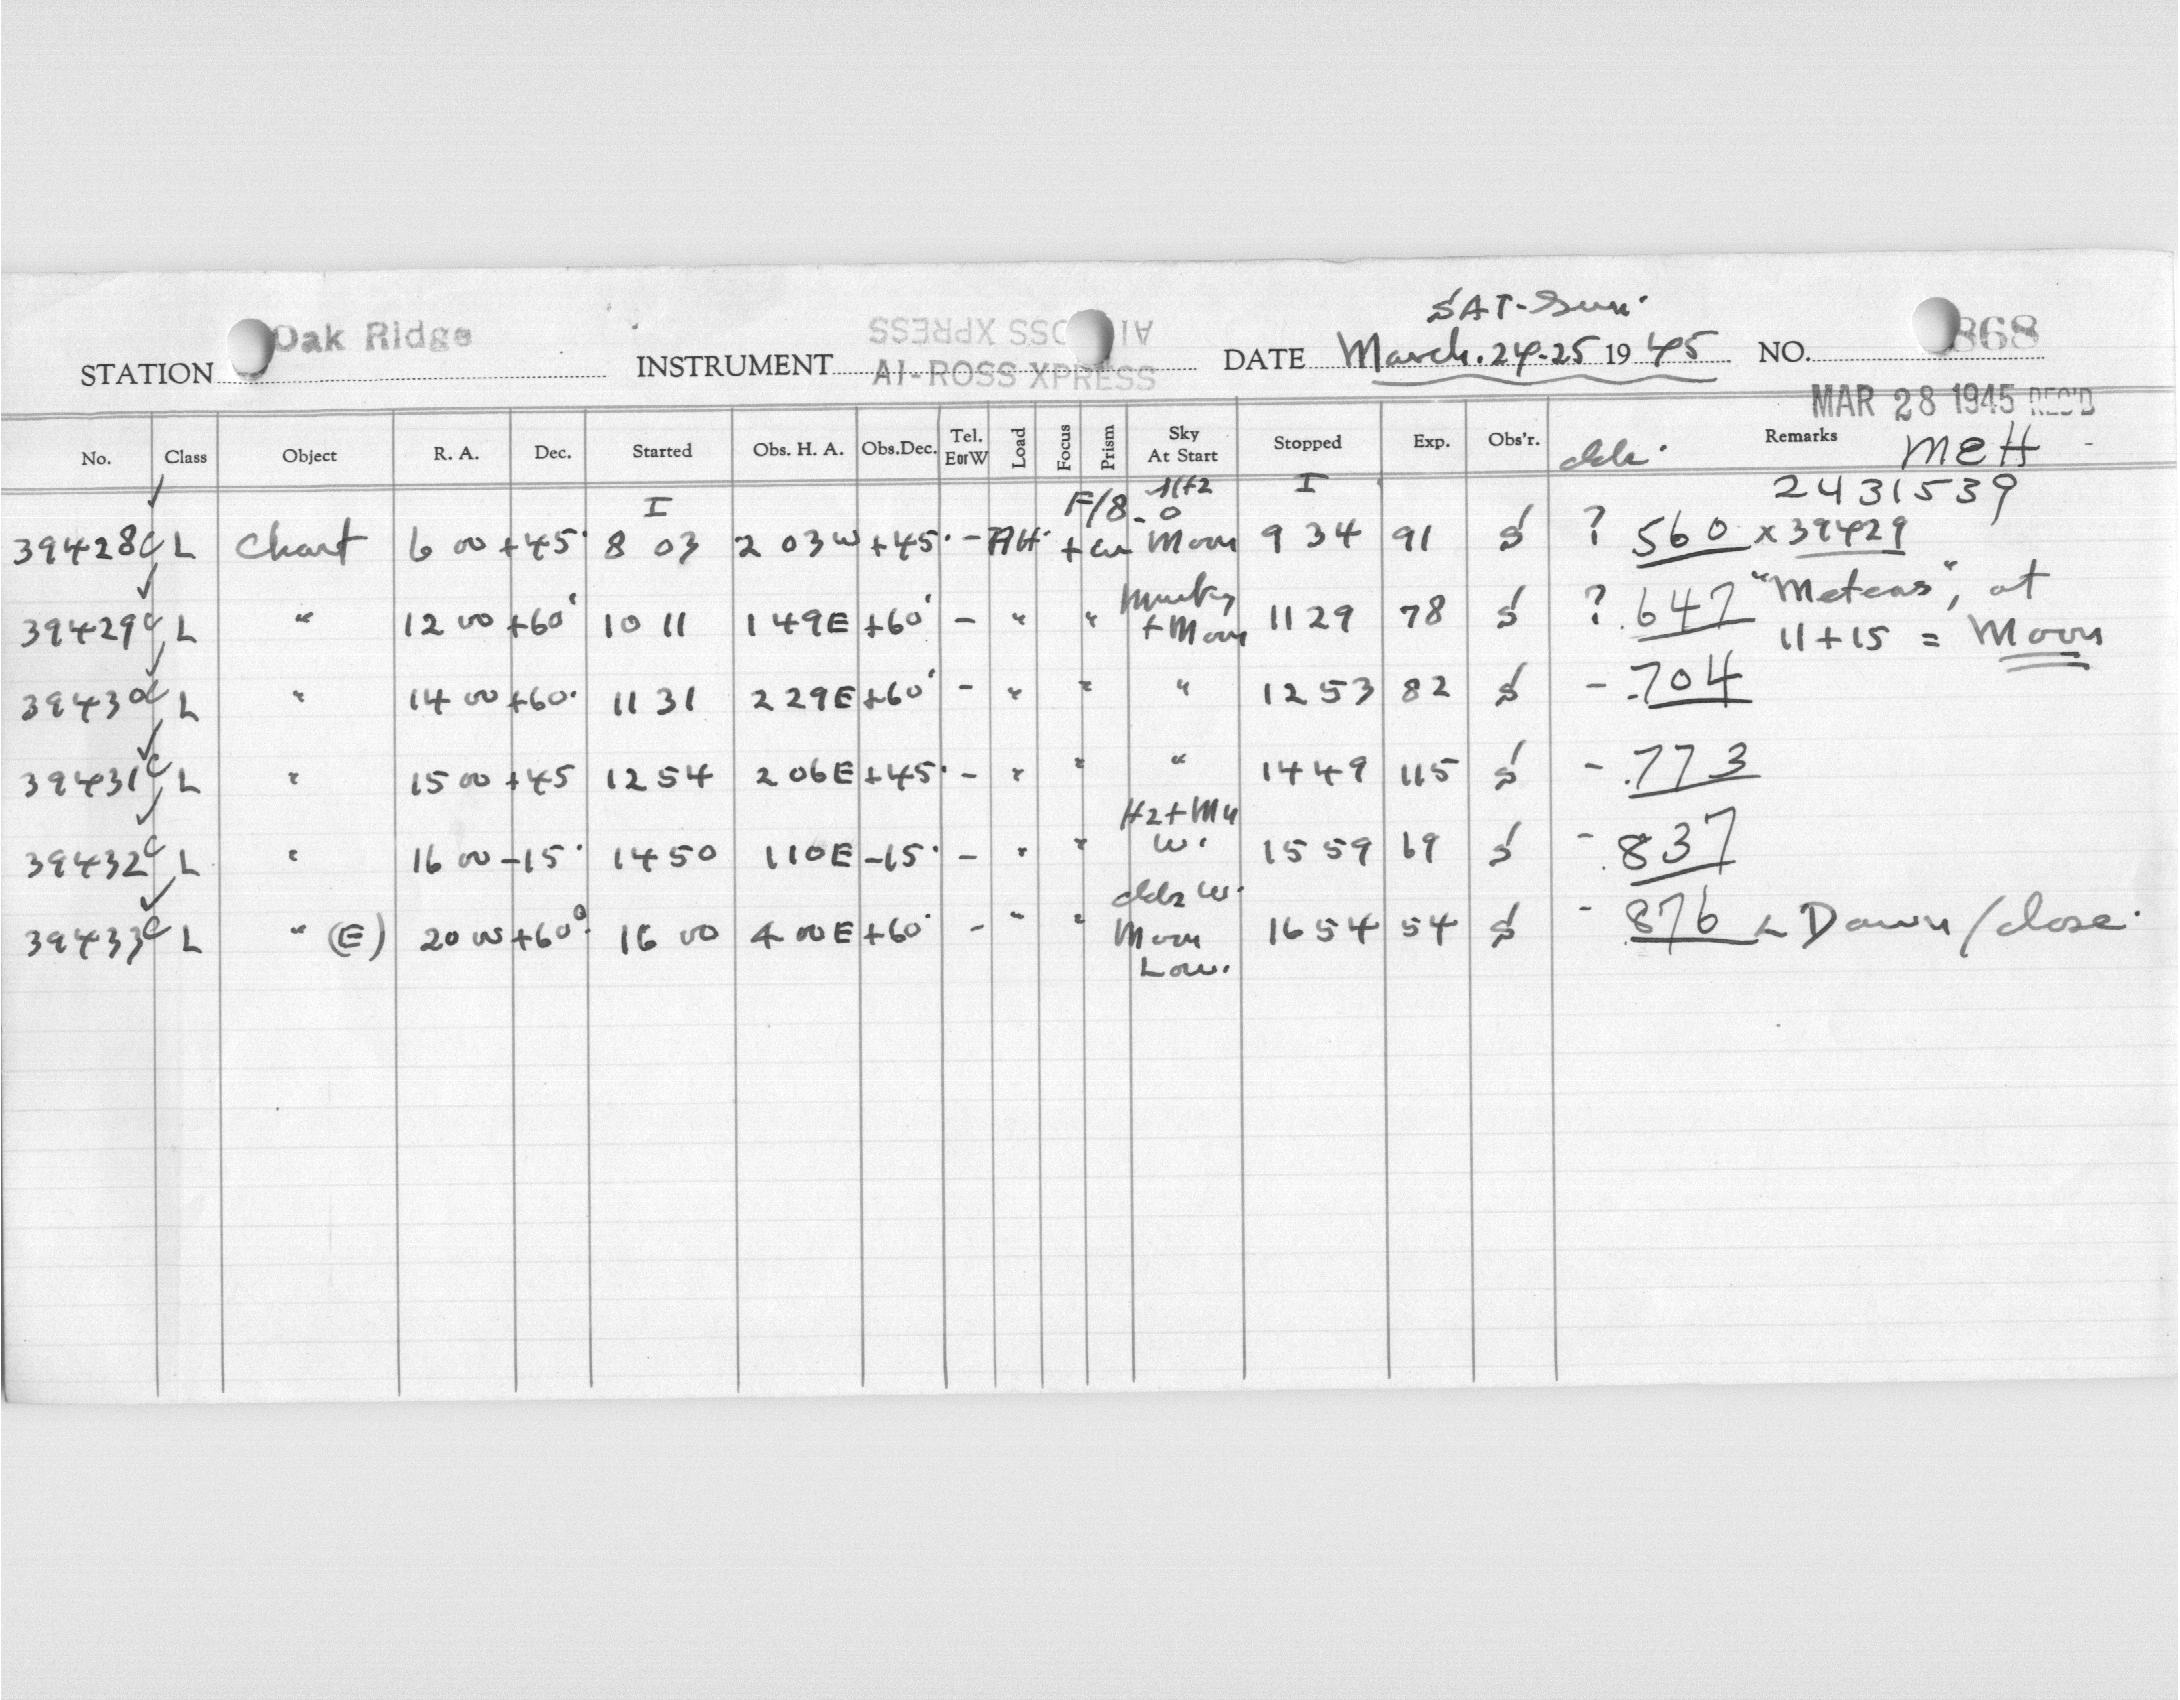 SAT-Sun.
STATION Oak Ridge INSTRUMENT AI-ROSS XPRESS DATE March. 24-25 1945 NO. 868
MAR 28 1945 REC'D
No. Class Object R. A. Dec. Started Obs. H. A. Obs.Dec. Tel. E or W Load Focus Prism Sky At Start Stopped Exp. Obs'r. Remarks MEH
I F/8 I 2431539
39428 C L Chart 6 00 +45° 8 03 2 03W +45° - Moon 9 34 91 S ? 560 x 39429
39429 C L " 12 00 +60° 10 11 1 49E +60° - " " Murky + Moon 11 29 78 S ? .647 "Meteors", at
11+15 = Moon
39430 C L " 14 00 +60° 11 31 2 29E +60° - " " " 12 53 82 S - .704
39431 C L " 15 00 +45 12 54 2 06E +45° - " " " 14 49 115 S - .773
39432 C L " 16 00 -15° 14 50 1 10E -15° - " " W. 15 59 69 S - .837
39433 C L " (E) 20 00 +60° 16 00 4 00E +60° - " " Moon Low. 16 54 54 S - .876 Dawn/close.